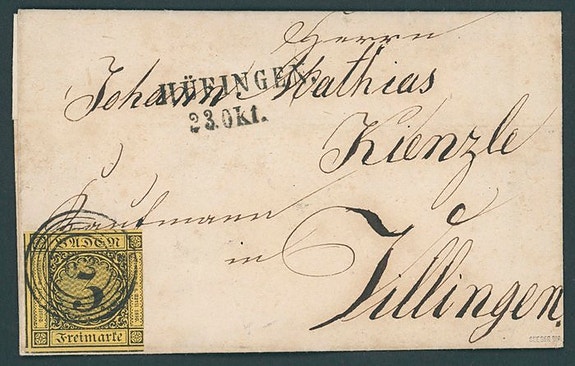 Herrn
Johann Mathias
HÜFINGEN.
23.Okt.
Kienzle
Kaufmann
in
Villingen.
BADEN
5
Freimarke